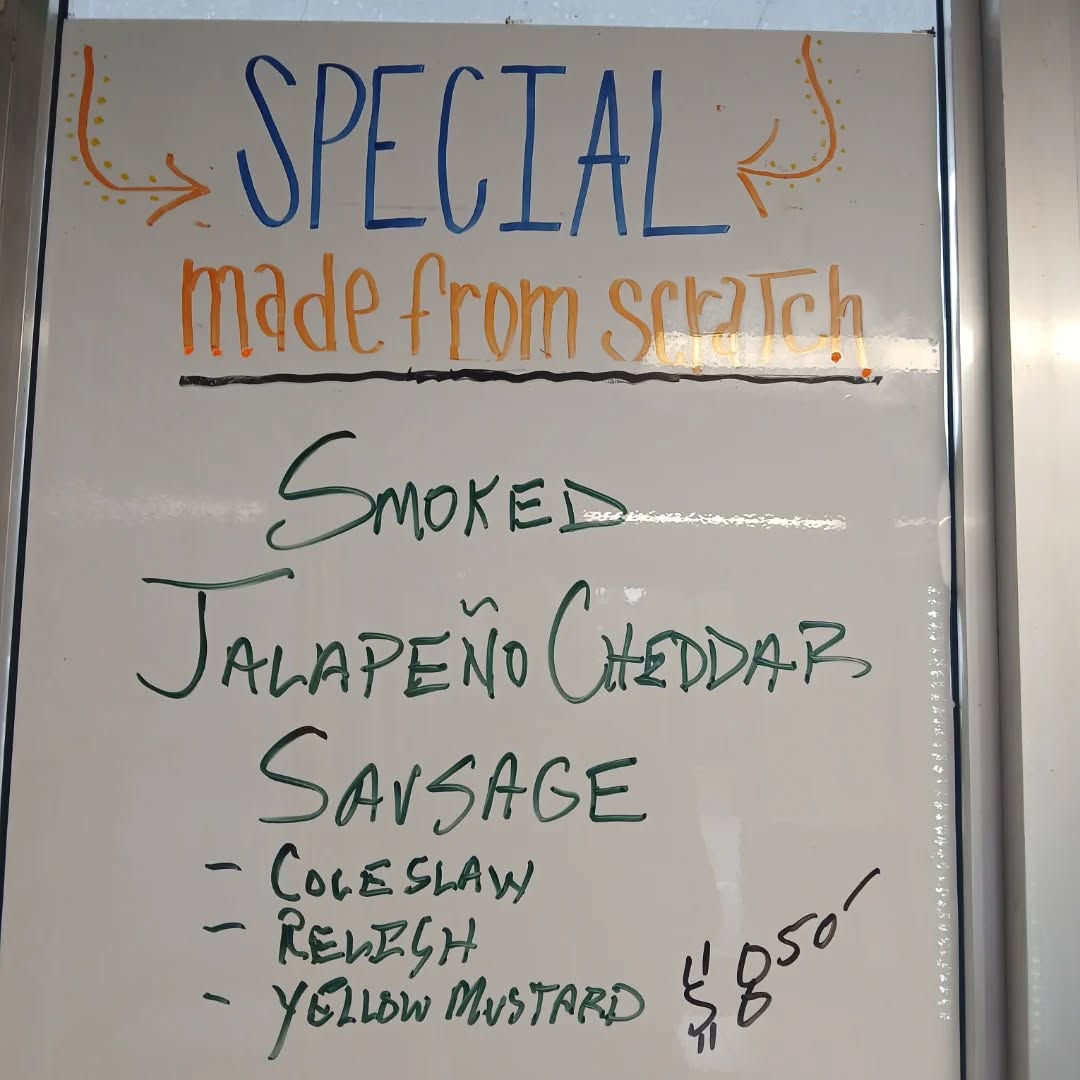 SPECIAL
made from scratch
SMOKED
JALAPEÑO CHEDDAR
SAUSAGE
- COLESLAW
- RELISH
- YELLOW MUSTARD $8.50